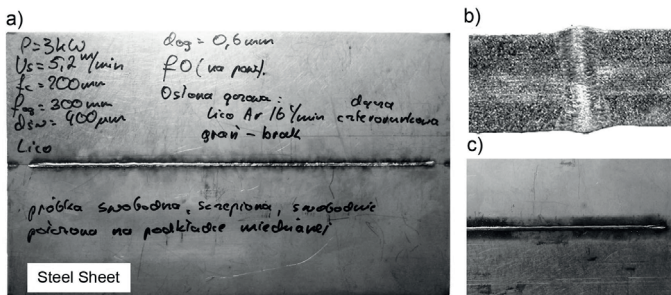 a)
P=3kW
Us=5,2 m/min
fc=200mm
fog=300mm
dśw=400μm
Lico
dog=0,6mm
f0 (na pow).
Osłona gazowa:
lico Ar 16 l/min dysza czterorurkowa
grań - brak
próbka swobodna, sczepiona, swobodnie
położona na podkładce miedzianej
Steel Sheet
b)
c)